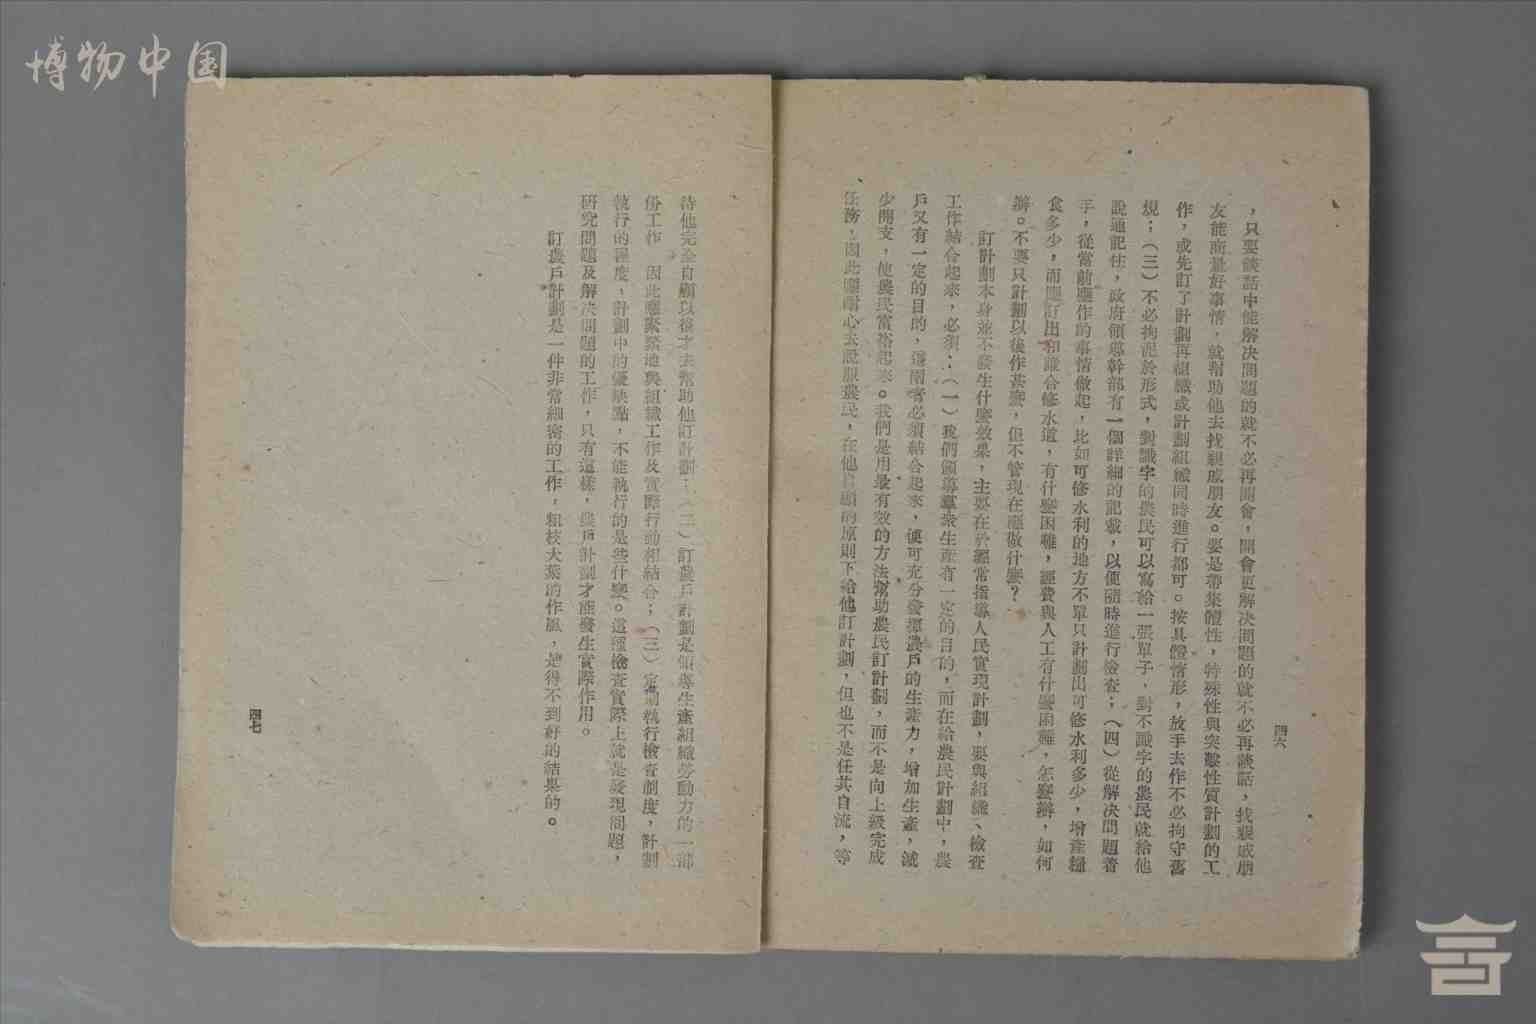 博物中国
，只要談話中能解决問題的就不必再開會，開會更解决問題的就不必再談話，找親戚朋
友能商量好事情，就幫助他去找親戚朋友。要是帶集體性，特殊性與突擊性質計劃的工
作，或先訂了計劃再組織或計劃組織同時進行都可。按具體情形，放手去作不必拘守舊
規；（三）不必拘泥於形式，對識字的農民可以寫給一張單子，對不識字的農民就給他
說通記住，政府領導幹部有一個詳細的記載，以便隨時進行檢查；（四）從解决問題着
手，從當前應作的事情做起，比如可修水利的地方不單只計劃出可修水利多少，增產糧
食多少，而應訂出和誰合修水道，有什麽困難，經費與人工有什麽困難，怎麽辦，如何
辦。不要只計劃以後作甚麽，但不管現在應做什麽？
訂計劃本身並不發生什麽效果，主要在於經常指導人民實現計劃，要與組織、檢查
工作結合起來，必須：（一）我們領導羣衆生產有一定的目的，而在給農民計劃中，農
戶又有一定的目的，這兩者必須結合起來，便可充分發揮農戶的生產力，增加生產，減
少開支，使農民富裕起來。我們是用最有效的方法幫助農民訂計劃，而不是向上級完成
任務，因此應耐心去說服農民，在他自願的原則下給他訂計劃，但也不是任其自流，等
四六
待他完全自願以後才去幫助他訂計劃；（二）訂農戶計劃是領導生產組織勞動力的一部
份工作，因此應緊緊地與組織工作及實際行動相結合；（三）定期執行檢查制度，計劃
執行的程度，計劃中的優缺點，不能執行的是些什麽。這種檢查實際上就是發現問題，
研究問題及解决問題的工作，只有這樣，農戶計劃才能發生實際作用。
訂農戶計劃是一件非常細密的工作，粗枝大葉的作風，是得不到好的結果的。
四七